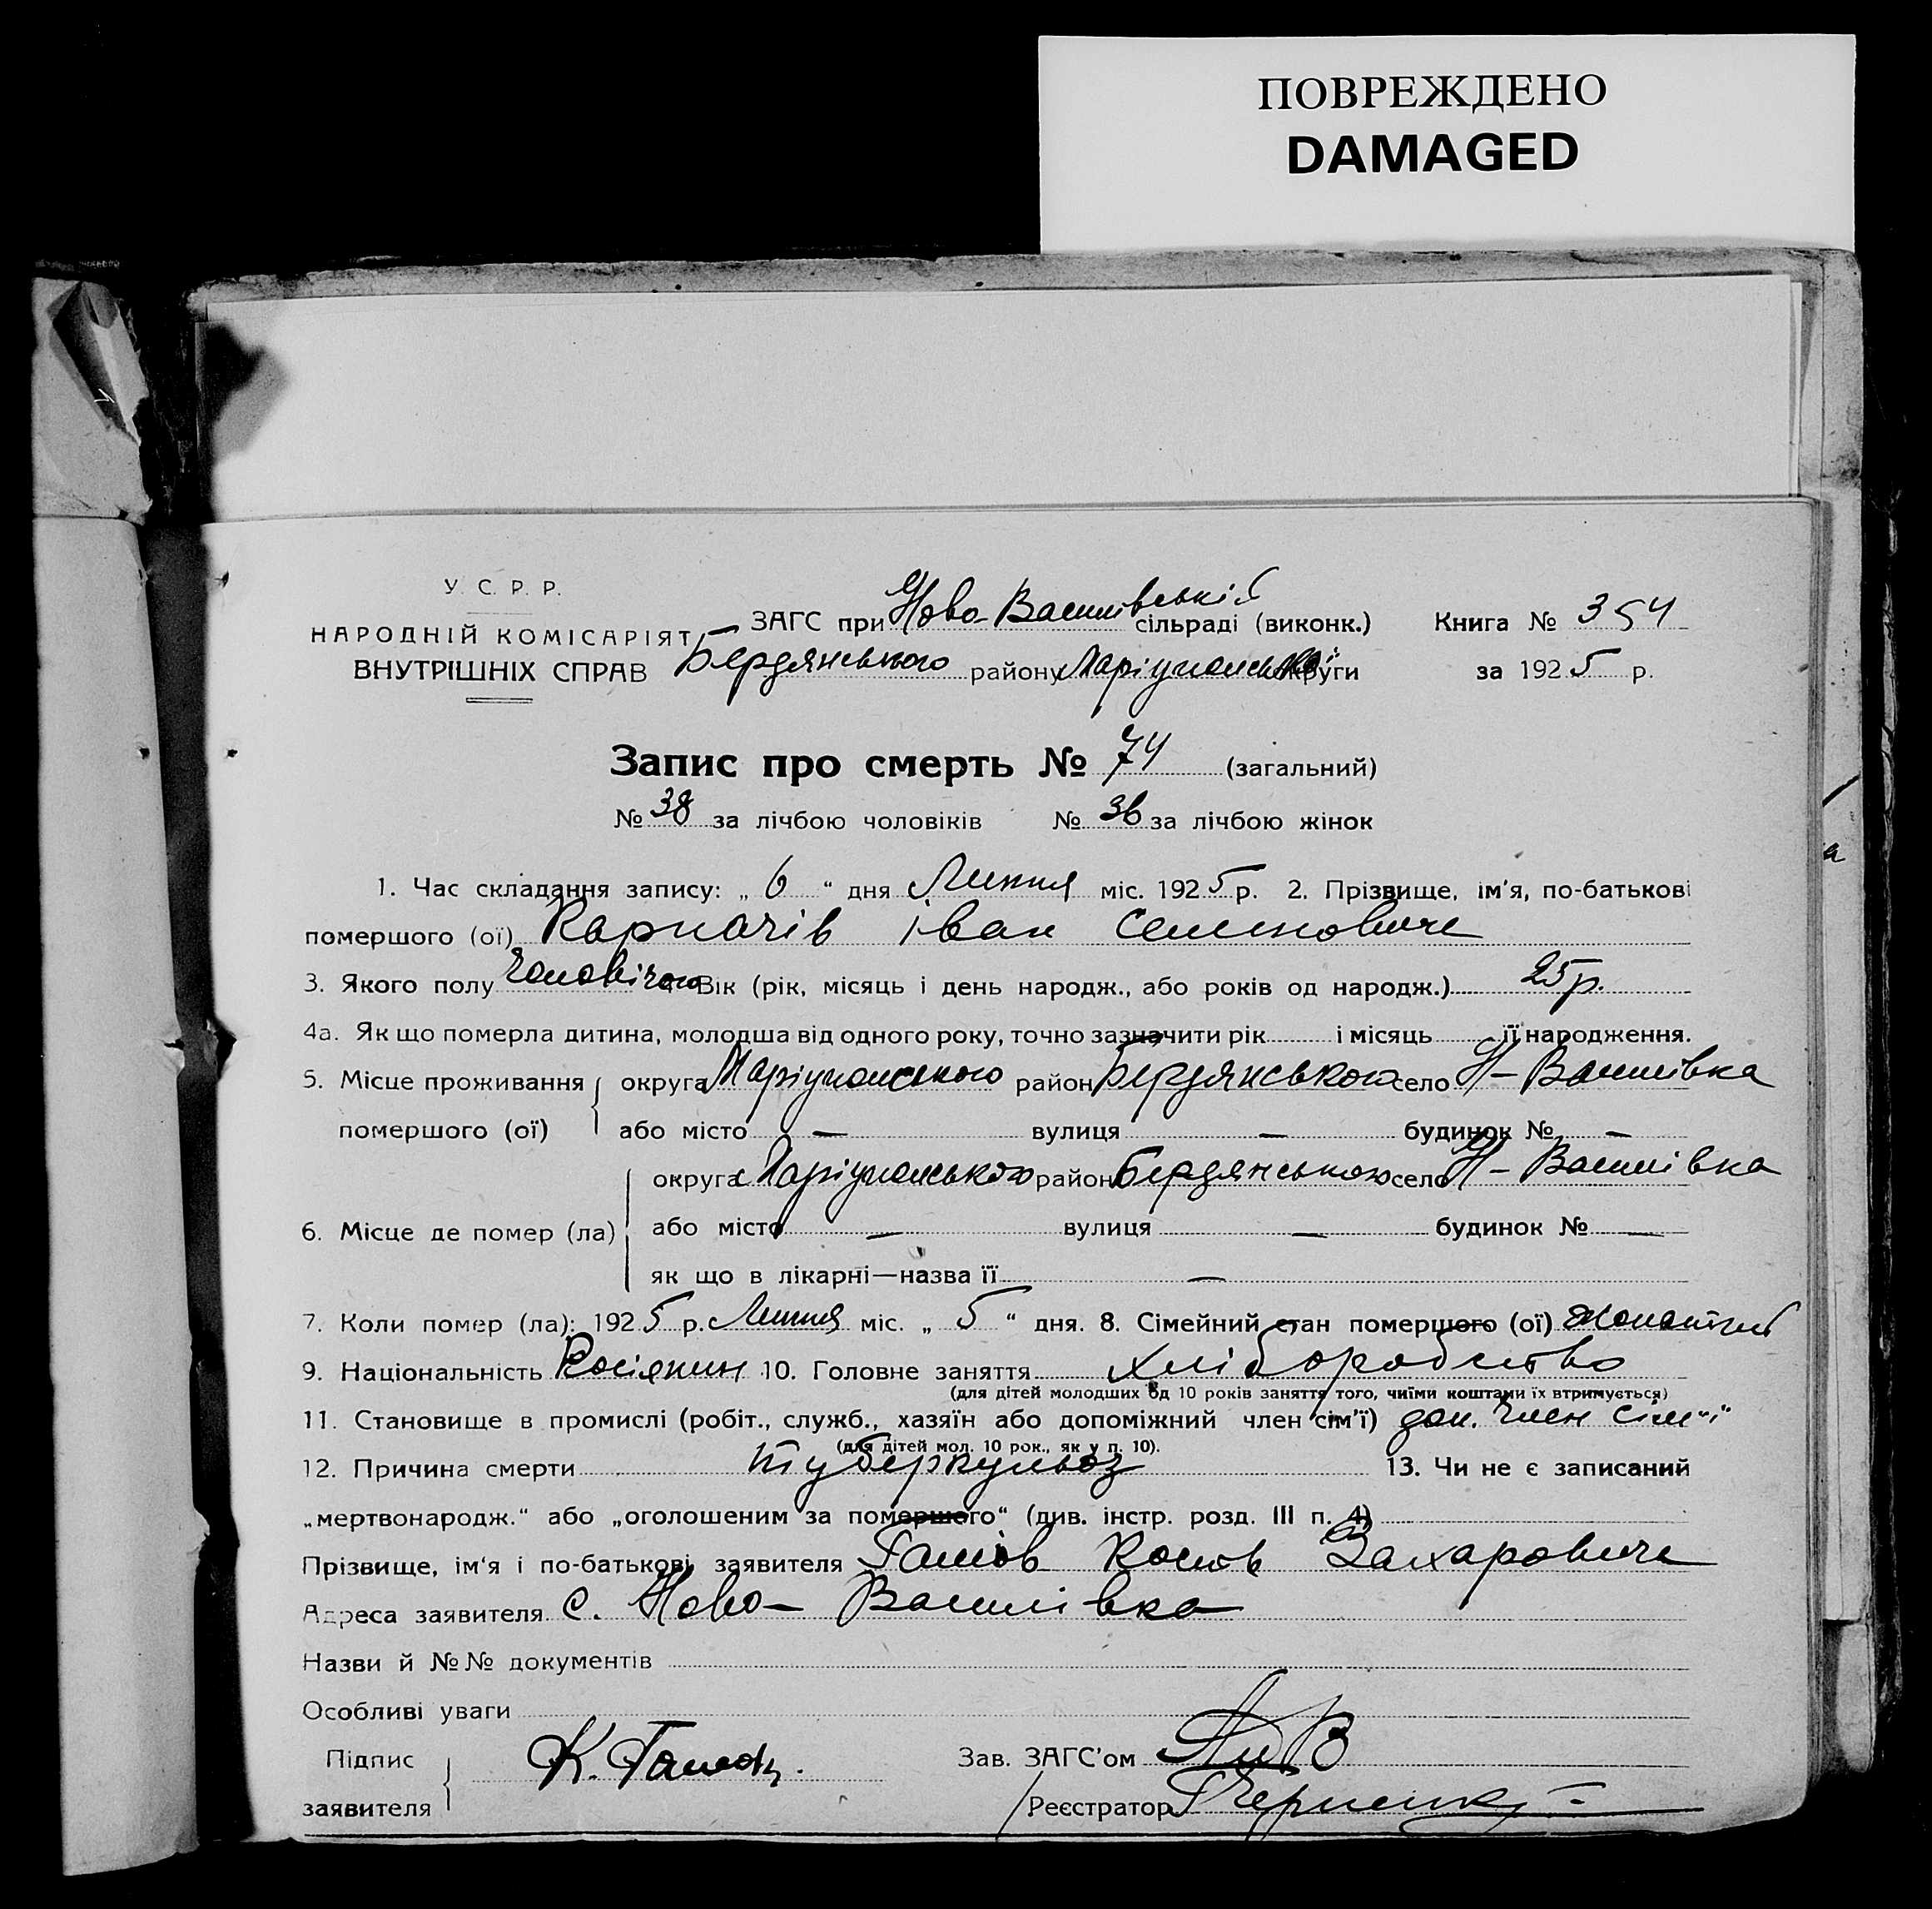 ПОВРЕЖДЕНО
DAMAGED
У. С. Р. Р.
НАРОДНІЙ КОМІСАРІЯТ
ВНУТРІШНІХ СПРАВ
ЗАГС при Ново-Василівській сільраді (виконк.) Книга № 354
Бердянського району Маріупольської округи за 1925 р.
Запис про смерть № 74 (загальний)
№ 38 за лічбою чоловіків № 36 за лічбою жінок
1. Час складання запису: „ 6 “ дня Липня міс. 1925 р. 2. Прізвище, ім'я, по-батькові
помершого (ої) Карпачів Іван Семенович
3. Якого полу чоловічого Вік (рік, місяць і день народж., або років од народж.) 25 р.
4а. Як що померла дитина, молодша від одного року, точно зазначити рік і місяць її народження.
5. Місце проживання округа Маріупольського район Бердянського село Н-Василівка
помершого (ої) або місто — вулиця — будинок № —
округа Маріупольського район Бердянського село Н-Василівка
6. Місце де помер (ла) або місто — вулиця — будинок № —
як що в лікарні—назва її —
7. Коли помер (ла): 1925 р. Липня міс. „ 5 “ дня. 8. Сімейний стан помершого (ої) жонатий
9. Національність Росіянин 10. Головне заняття хліборобство
(для дітей молодших од 10 років заняття того, чиїми коштами їх втримується)
11. Становище в промислі (робіт., служб., хазяїн або допоміжний член сім'ї) доп. член сім"ї
(для дітей мол. 10 рок., як у п. 10).
12. Причина смерти туберкульоз 13. Чи не є записаний
„мертвонародж.“ або „оголошеним за помершого“ (див. інстр. розд. III п. 4)
Прізвище, ім'я і по-батькові заявителя Захарович
Адреса заявителя с. Ново-Василівка
Назви й №№ документів
Особливі уваги
Підпис
заявителя
Зав. ЗАГС'ом
Реєстратор